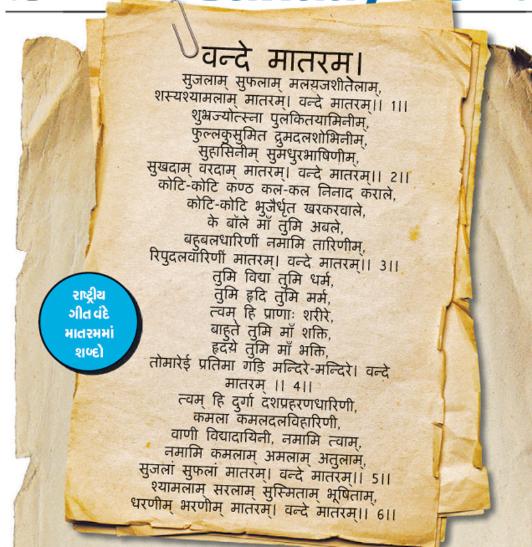 वन्दे मातरम।
सुजलाम् सुफलाम् मलयजशीतलाम्,
शस्यश्यामलाम् मातरम्। वन्दे मातरम्।। 1।।
शुभ्रज्योत्स्ना पुलकितयामिनीम्,
फुल्लकुसुमित द्रुमदलशोभिनीम्,
सुहासिनीम् सुमधुरभाषिणीम्,
सुखदाम् वरदाम् मातरम्। वन्दे मातरम्।। 2।।
कोटि-कोटि कण्ठ कल-कल निनाद कराले,
कोटि-कोटि भुजैर्धृत खरकरवाले,
के बॉले माँ तुमि अबले,
बहुबलधारिणीं नमामि तारिणीम्,
रिपुदलवारिणीं मातरम्। वन्दे मातरम्।। 3।।
तुमि विद्या तुमि धर्म,
तुमि हृदि तुमि मर्म,
त्वम् हि प्राणाः शरीरे,
बाहुते तुमि माँ शक्ति,
हृदये तुमि माँ भक्ति,
तोमारेई प्रतिमा गड़ि मन्दिरे-मन्दिरे। वन्दे
मातरम् ।। 4।।
त्वम् हि दुर्गा दशप्रहरणधारिणी,
कमला कमलदलविहारिणी,
वाणी विद्यादायिनी, नमामि त्वाम्,
नमामि कमलाम् अमलाम् अतुलाम्,
सुजलां सुफलां मातरम्। वन्दे मातरम्।। 5।।
श्यामलाम् सरलाम् सुस्मिताम् भूषिताम्,
धरणीम् भरणीम् मातरम्। वन्दे मातरम्।। 6।।
રાષ્ટ્રીય
ગીત વંદે
માતરમમાં
શબ્દો